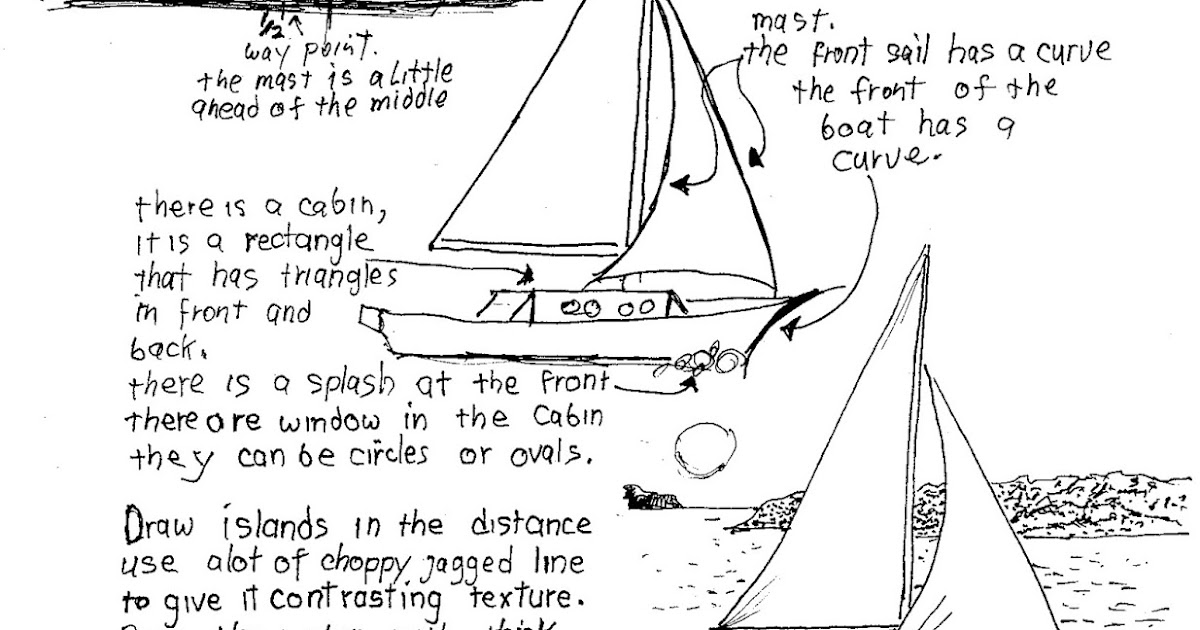 1/2
way point.
the mast is a little
ahead of the middle
mast.
the front sail has a curve
the front of the
boat has a
curve.
there is a cabin,
it is a rectangle
that has triangles
in front and
back.
there is a splash at the front
there are window in the Cabin
they can be circles or ovals.
Draw islands in the distance
use alot of choppy jagged line
to give it contrasting texture.